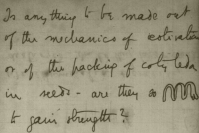 Is anything to be made out
of the mechanics of estivation
or of the packing of cotyledons
in seeds - are they so
to gain strength?